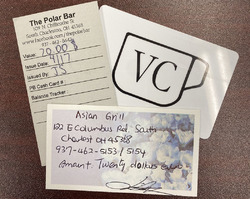 The Polar Bar
South Charleston, OH 45368
www.facebook.com/thepolarbar
937-462-
Value: 20.00 $
Issue Date: 9/17
Issued By: JS
PB Cash Card #:
Balance Tracker:
VC
Asian Grill
122 E Columbus Rd. South
Charlest OH 45368
937-462-5153/5154
Amount Twenty dollars